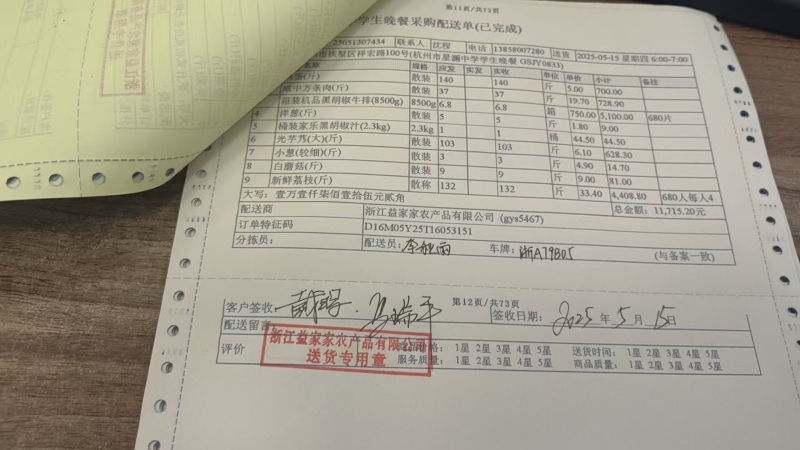 第11页/共73页
学生晚餐采购配送单(已完成)
25051307434 联系人 沈程 电话 13858007280 送货 2025-05-15 星期四 6:00-7:00
祥宏路100号(杭州市星澜中学学生晚餐 GSJY0833)
规格 应发 实发 实收 单位 单价 小计 备注
(斤) 散装 140 140 斤 5.00 700.00
威中方条肉(斤) 散装 37 37 斤 19.70 728.90
箱装杭品黑胡椒牛排(8500g) 8500g 6.8 6.8 箱 750.00 5,100.00 680片
4 洋葱(斤) 散装 5 5 斤 1.80 9.00
5 桶装家乐黑胡椒汁(2.3kg) 2.3kg 1 1 桶 44.50 44.50
6 光芋艿(大)(斤) 散装 103 103 斤 6.10 628.30
7 小葱(较细)(斤) 散装 3 3 斤 4.90 14.70
8 白蘑菇(斤) 散装 9 9 斤 9.00 81.00
9 新鲜荔枝(斤) 散称 132 132 斤 33.40 4,408.80 680人每人4
大写: 壹万壹仟柒佰壹拾伍元贰角 总金额: 11,715.20元
配送商 浙江益家家农产品有限公司 (gys5467)
订单特征码 D16M05Y25T16053151
分拣员: 配送员: 车牌: 浙A79B05 (与备案一致)
第12页/共73页
客户签收 签收日期: 2025 年 5 月 15 日
配送留言
浙江益家家农产品有限公司
送货专用章
评价 1星 2星 3星 4星 5星 送货时间: 1星 2星 3星 4星 5星
服务质量: 1星 2星 3星 4星 5星 商品质量: 1星 2星 3星 4星 5星